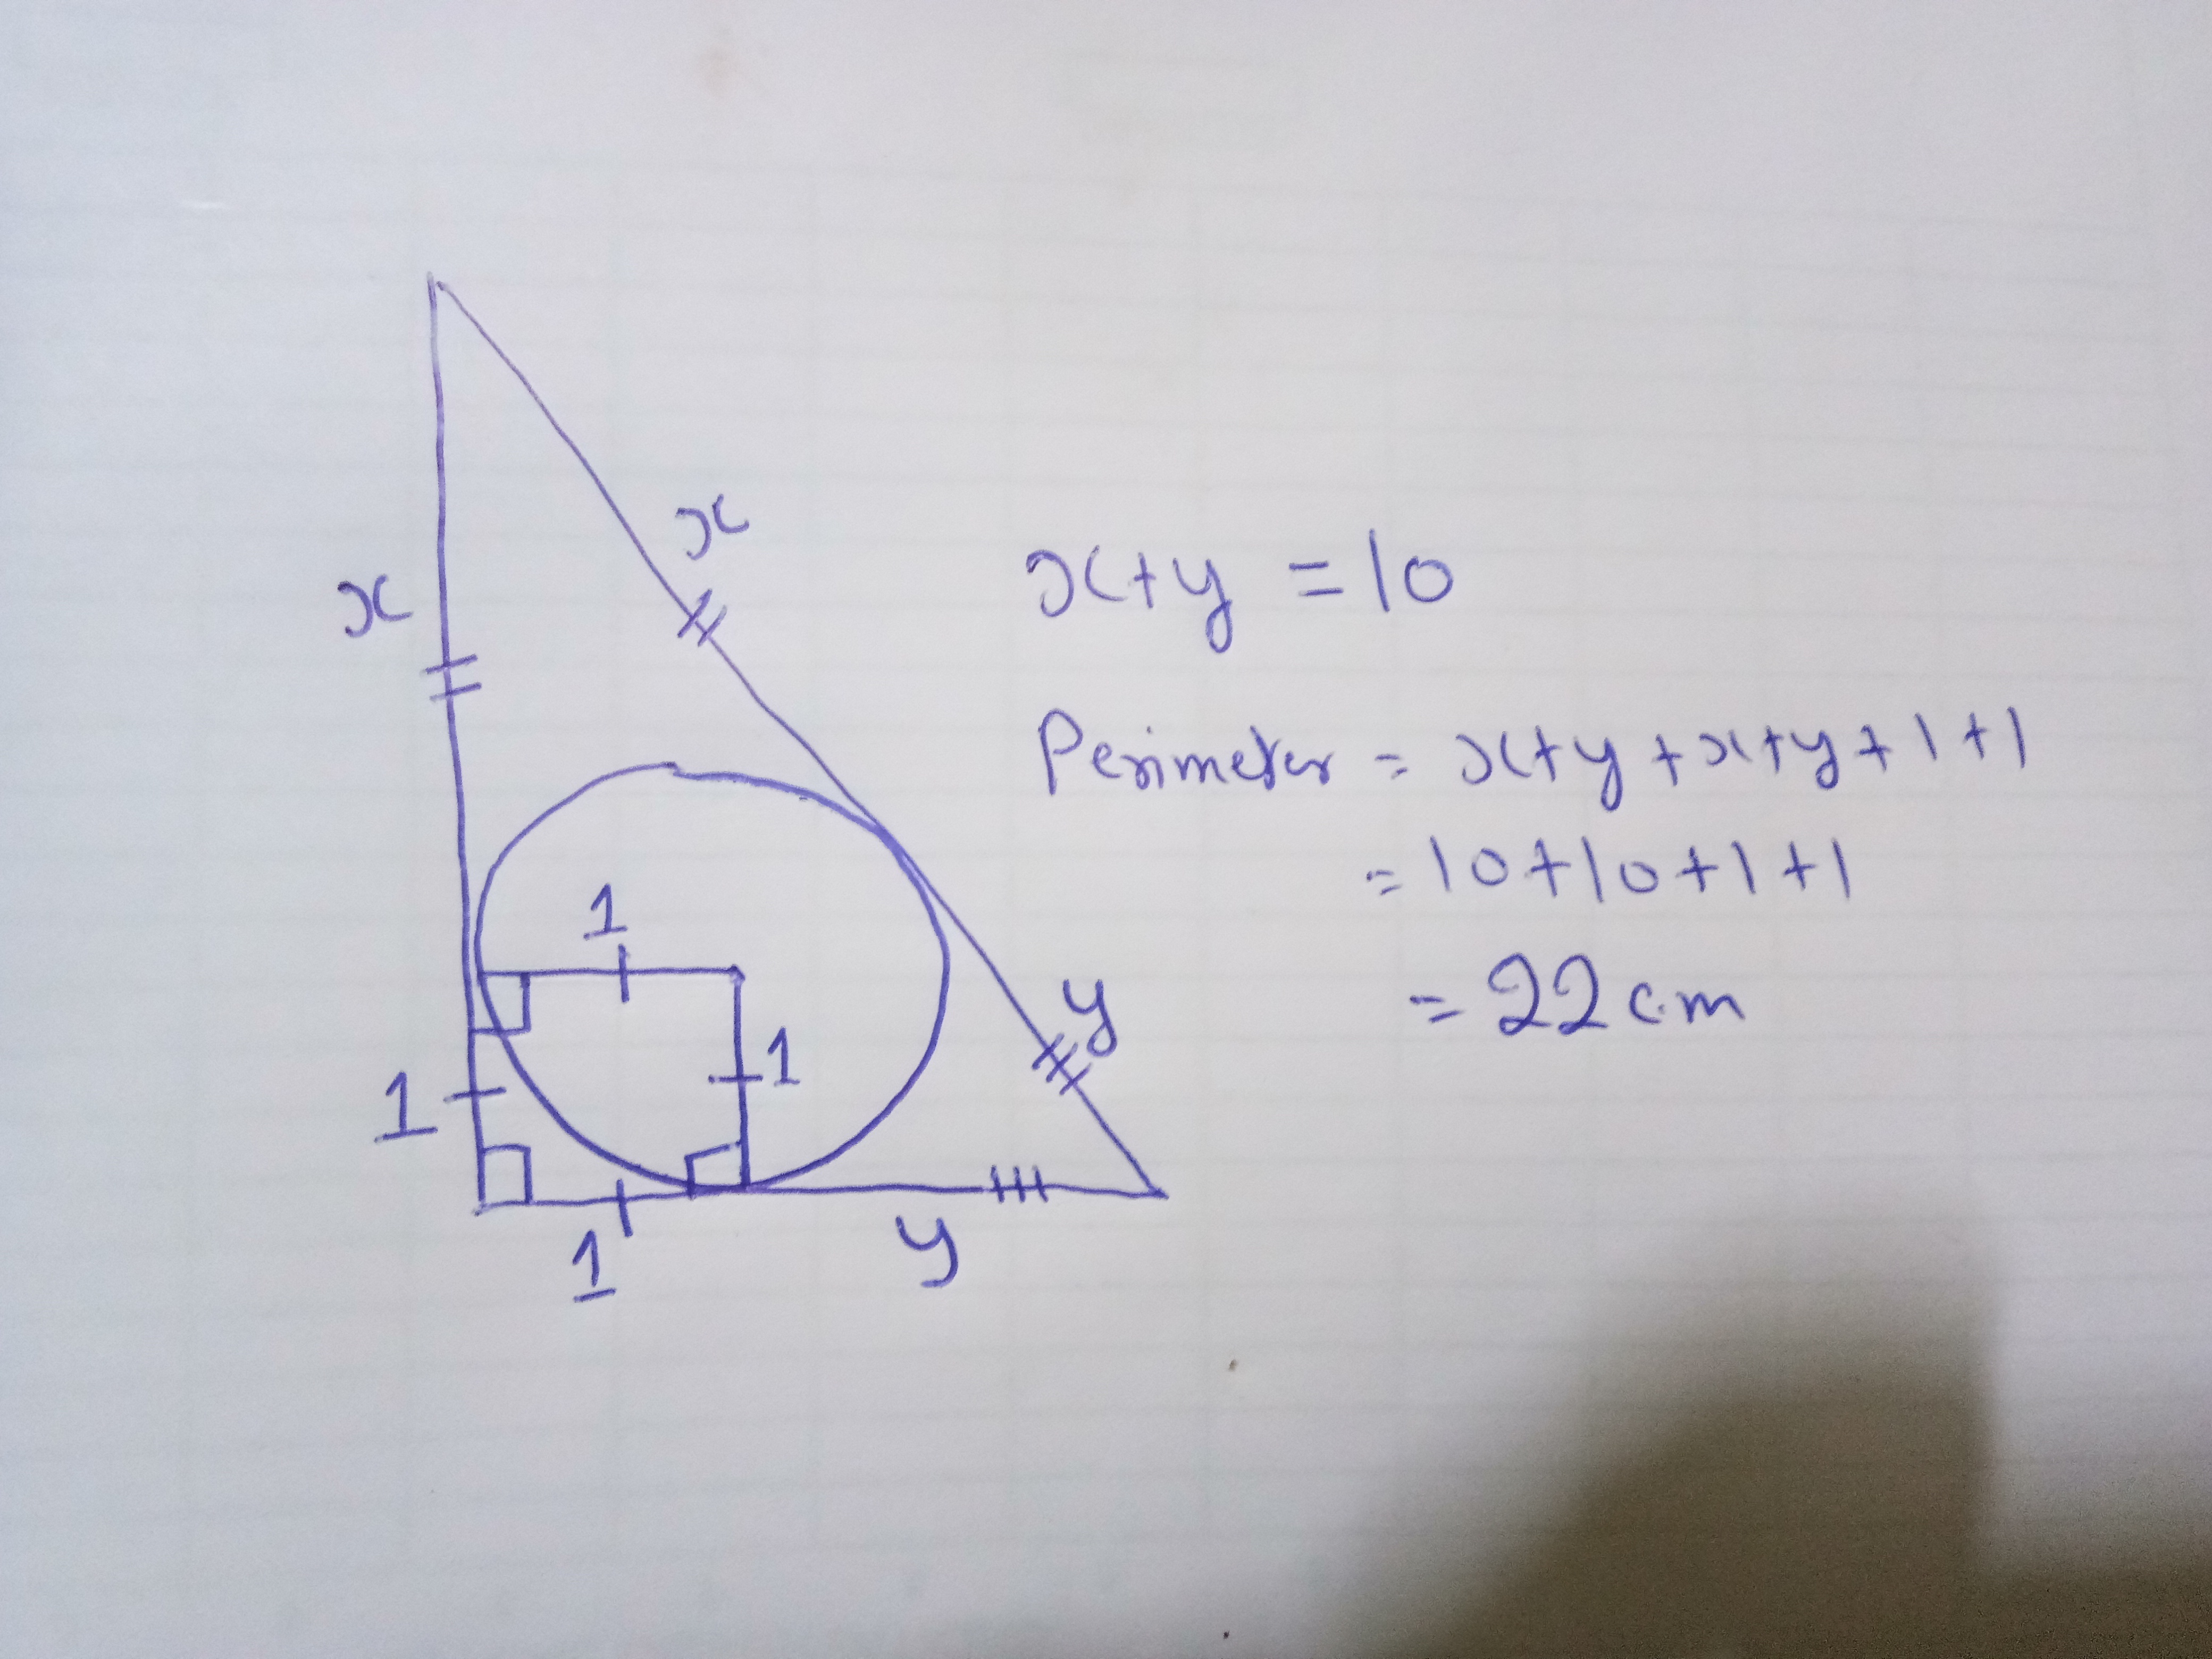 x
x
x+y = 10
Perimeter = x+y+x+y+1+1
= 10+10+1+1
1
= 22 cm
y
1
1
1
y